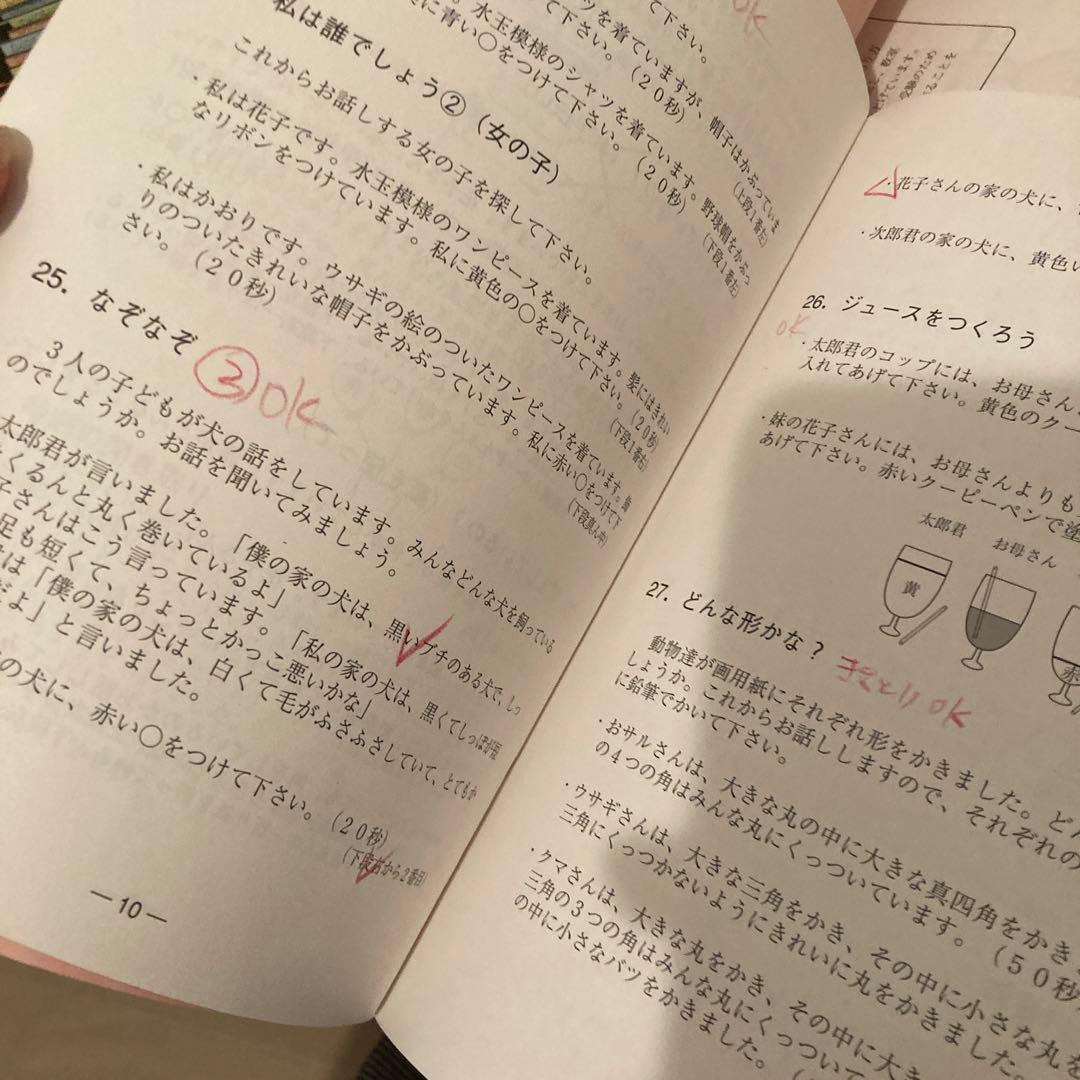 て下さい。
を着ていますが、帽子はかぶっていま
(上段1番左)
水玉模様のシャツを着ています。野球帽をかぶっ
に青い〇をつけて下さい。(20秒)
(下段1番左)
私は誰でしょう②(女の子)
これからお話しする女の子を探して下さい。
・私は花子です。水玉模様のワンピースを着ています。髪にはきれい
なリボンをつけています。私に黄色の〇をつけて下さい。(20秒)
(下段1番右)
・私はかおりです。ウサギの絵のついたワンピースを着ています。
りのついたきれいな帽子をかぶっています。私に赤い〇をつけて下
さい。(20秒)
(下段真ん中)
25. なぞなぞ
②OK
3人の子どもが犬の話をしています。みんなどんな犬を飼っている
のでしょうか。お話を聞いてみましょう。
太郎君が言いました。「僕の家の犬は、黒いブチのある犬で、しっ
くるんと丸く巻いているよ」
子さんはこう言っています。「私の家の犬は、黒くてしっぽが短
足も短くて、ちょっとかっこ悪いかな」
は「僕の家の犬は、白くて毛がふさふさしていて、とてもか
だよ」と言いました。
の犬に、赤い〇をつけて下さい。(20秒)
(下段右から2番目)
―10―
・花子さんの家の犬に、
・次郎君の家の犬に、黄色い
26. ジュースをつくろう
OK
・太郎君のコップには、お母さん
入れてあげて下さい。黄色のクー
・妹の花子さんには、お母さんよりも
あげて下さい。赤いクーピーペンで塗
太郎君
お母さん
黄
赤
27. どんな形かな?
OK
動物達が画用紙にそれぞれ形をかきました。どん
しょうか。これからお話ししますので、それぞれの
に鉛筆でかいて下さい。
・おサルさんは、大きな丸の中に大きな真四角をかき
の4つの角はみんな丸にくっついています。(50秒
・ウサギさんは、大きな三角をかき、その中に小さな丸を
三角にくっつかないようにきれいに丸をかきました。
・クマさんは、大きな丸をかき、その中に大き
三角の3つの角はみんな丸にくっついて
の中に小さなバツをかきました。